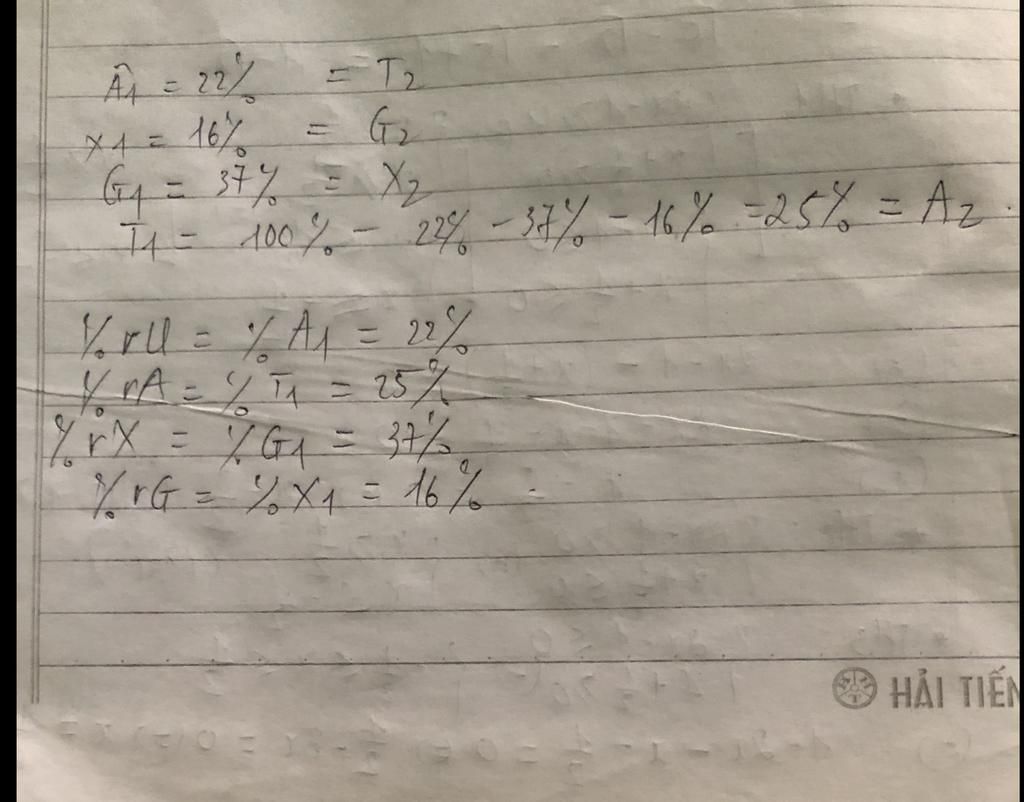 A1 = 22% = T2
X1 = 16% = G2
G1 = 37% = X2
T1 = 100% - 22% - 37% - 16% = 25% = A2.
%rU = %A1 = 22%
%rA = %T1 = 25%
%rX = %G1 = 37%
%rG = %X1 = 16%
HẢI TIẾN